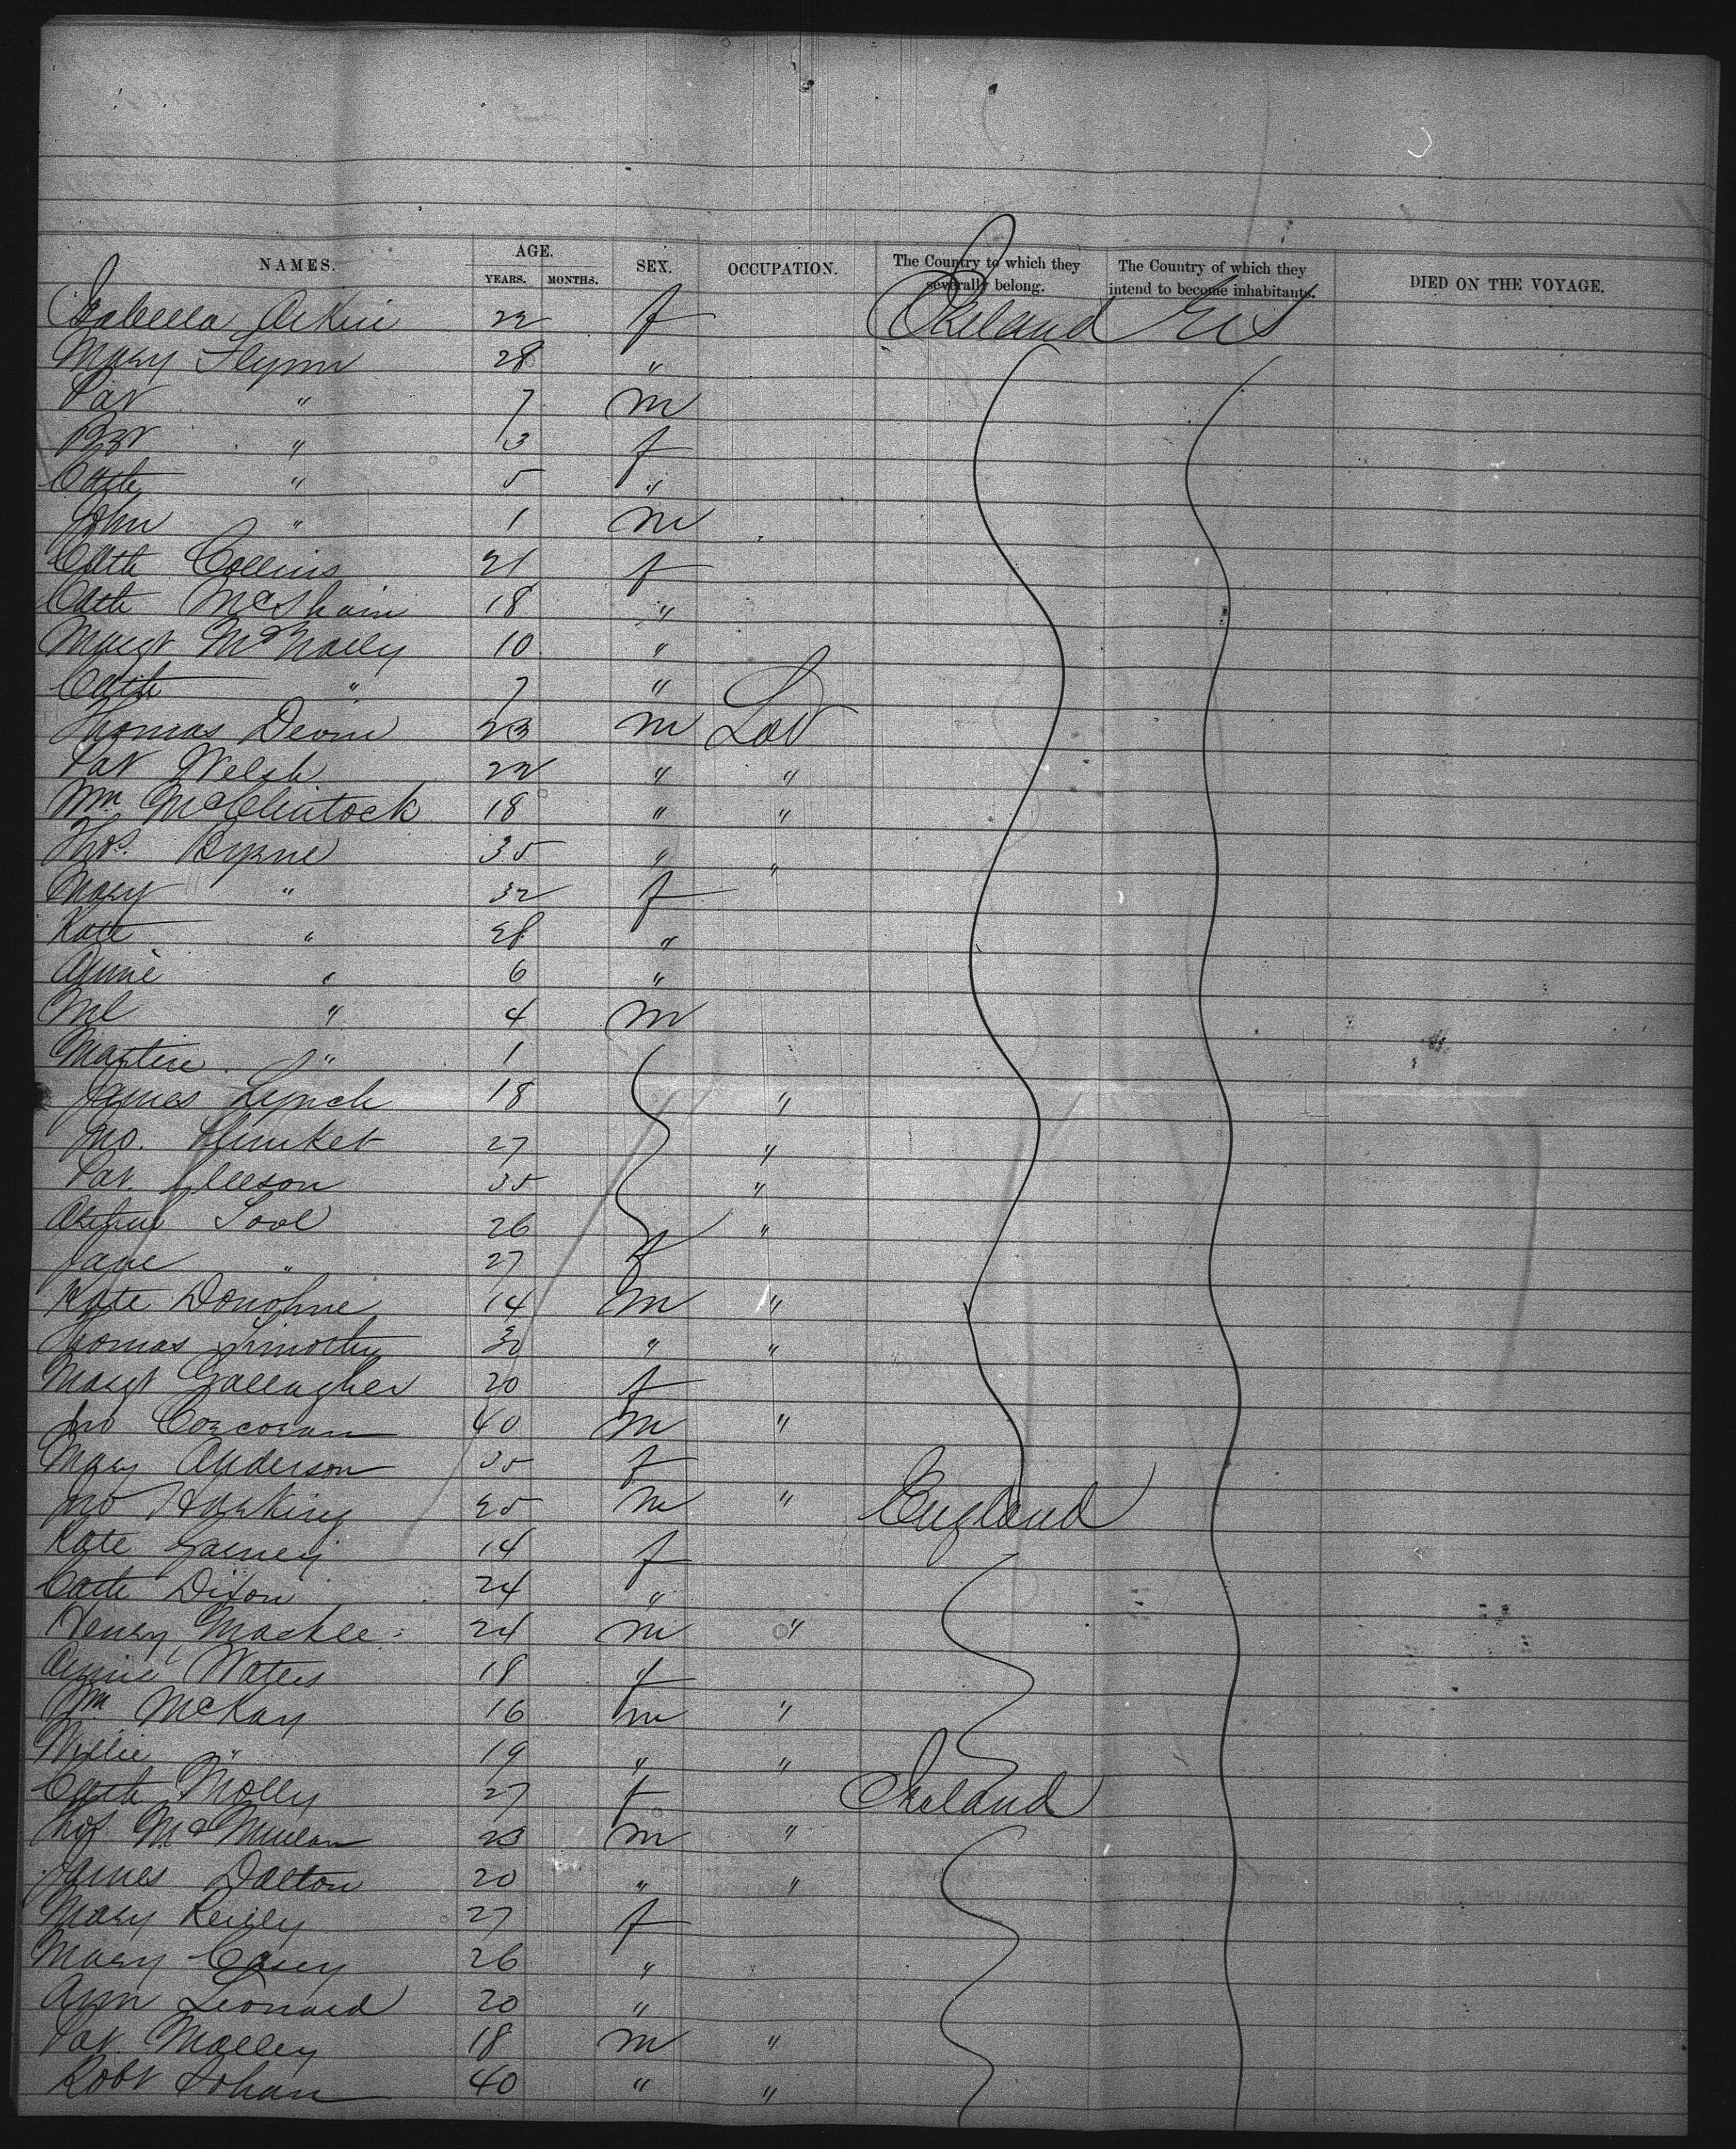 NAMES. AGE. SEX. OCCUPATION. The Country to which they severally belong. The Country of which they intend to become inhabitants. DIED ON THE VOYAGE.
YEARS. MONTHS.
Isabella Aikin 22 f Ireland U S
Mary Flynn 28 "
Pat " 7 m
Bgt " 3 f
Cath " 5 "
John " 1 m
Cath Collins 21 f
Cath McShain 18 "
Margt McNally 10 "
Cath " 7 "
Thomas Devin 23 m Lab
Pat Welsh 22 " "
Wm McClintock 18 " "
Thos. Byrne 35 " "
Mary " 32 f
Kate " 28 "
Annie " 6 "
Ml " 4 m
Martin " 1
James Lynch 18 "
Jno. Plunket 27 "
Pat. Gleeson 35 "
Arthur Tool 26 "
Jane " 27 f
Kate Donohue 14 m "
Thomas 30 " "
Margt Gallagher 20 f
Jno Corcoran 40 m "
Mary Anderson 35 f
Jno Hosking 25 m " England
Kate 14 f
Cath Dixon 24 "
Henry Mackle 24 m "
Annie Waters 18 f
Wm McKay 16 m "
Willie " 19 " "
Cath Molly 27 f Ireland
Thos McMullan 23 m "
James Dalton 20 " "
Mary Reilly 27 f
Mary Casey 26 "
Ann Leonard 20 "
Pat. Malley 18 m "
Robt 40 " "